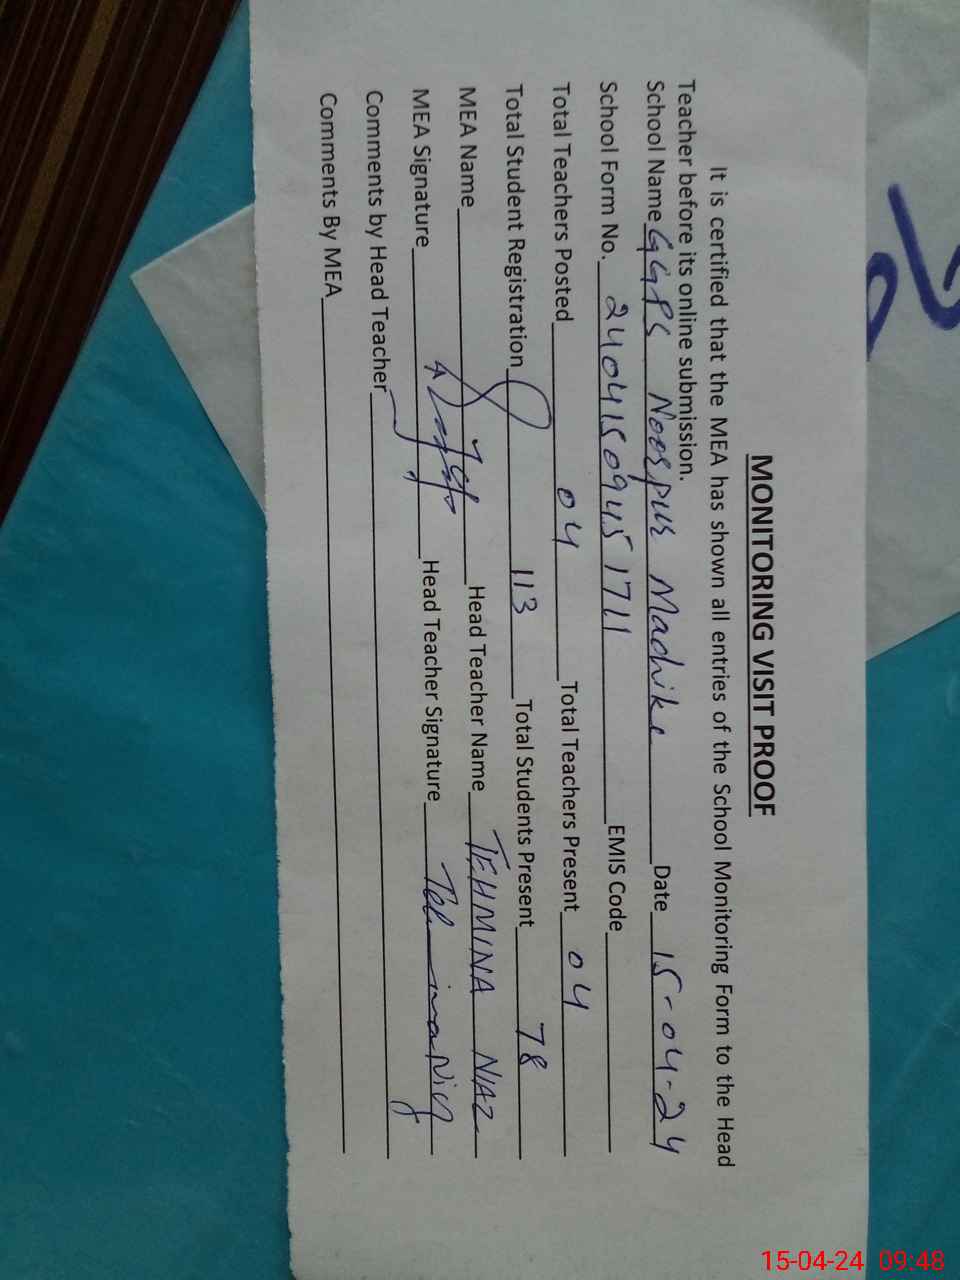 MONITORING VISIT PROOF
It is certified that the MEA has shown all entries of the School Monitoring Form to the Head
Teacher before its online submission.
School Name GGPS Noorpur Madhike Date 15-04-24
School Form No. 2404150945 1711 EMIS Code
Total Teachers Posted 04 Total Teachers Present 04
Total Student Registration 113 Total Students Present 78
MEA Name Head Teacher Name TEHMINA NIAZ
MEA Signature Head Teacher Signature
Comments by Head Teacher
Comments By MEA
15-04-24 09:48